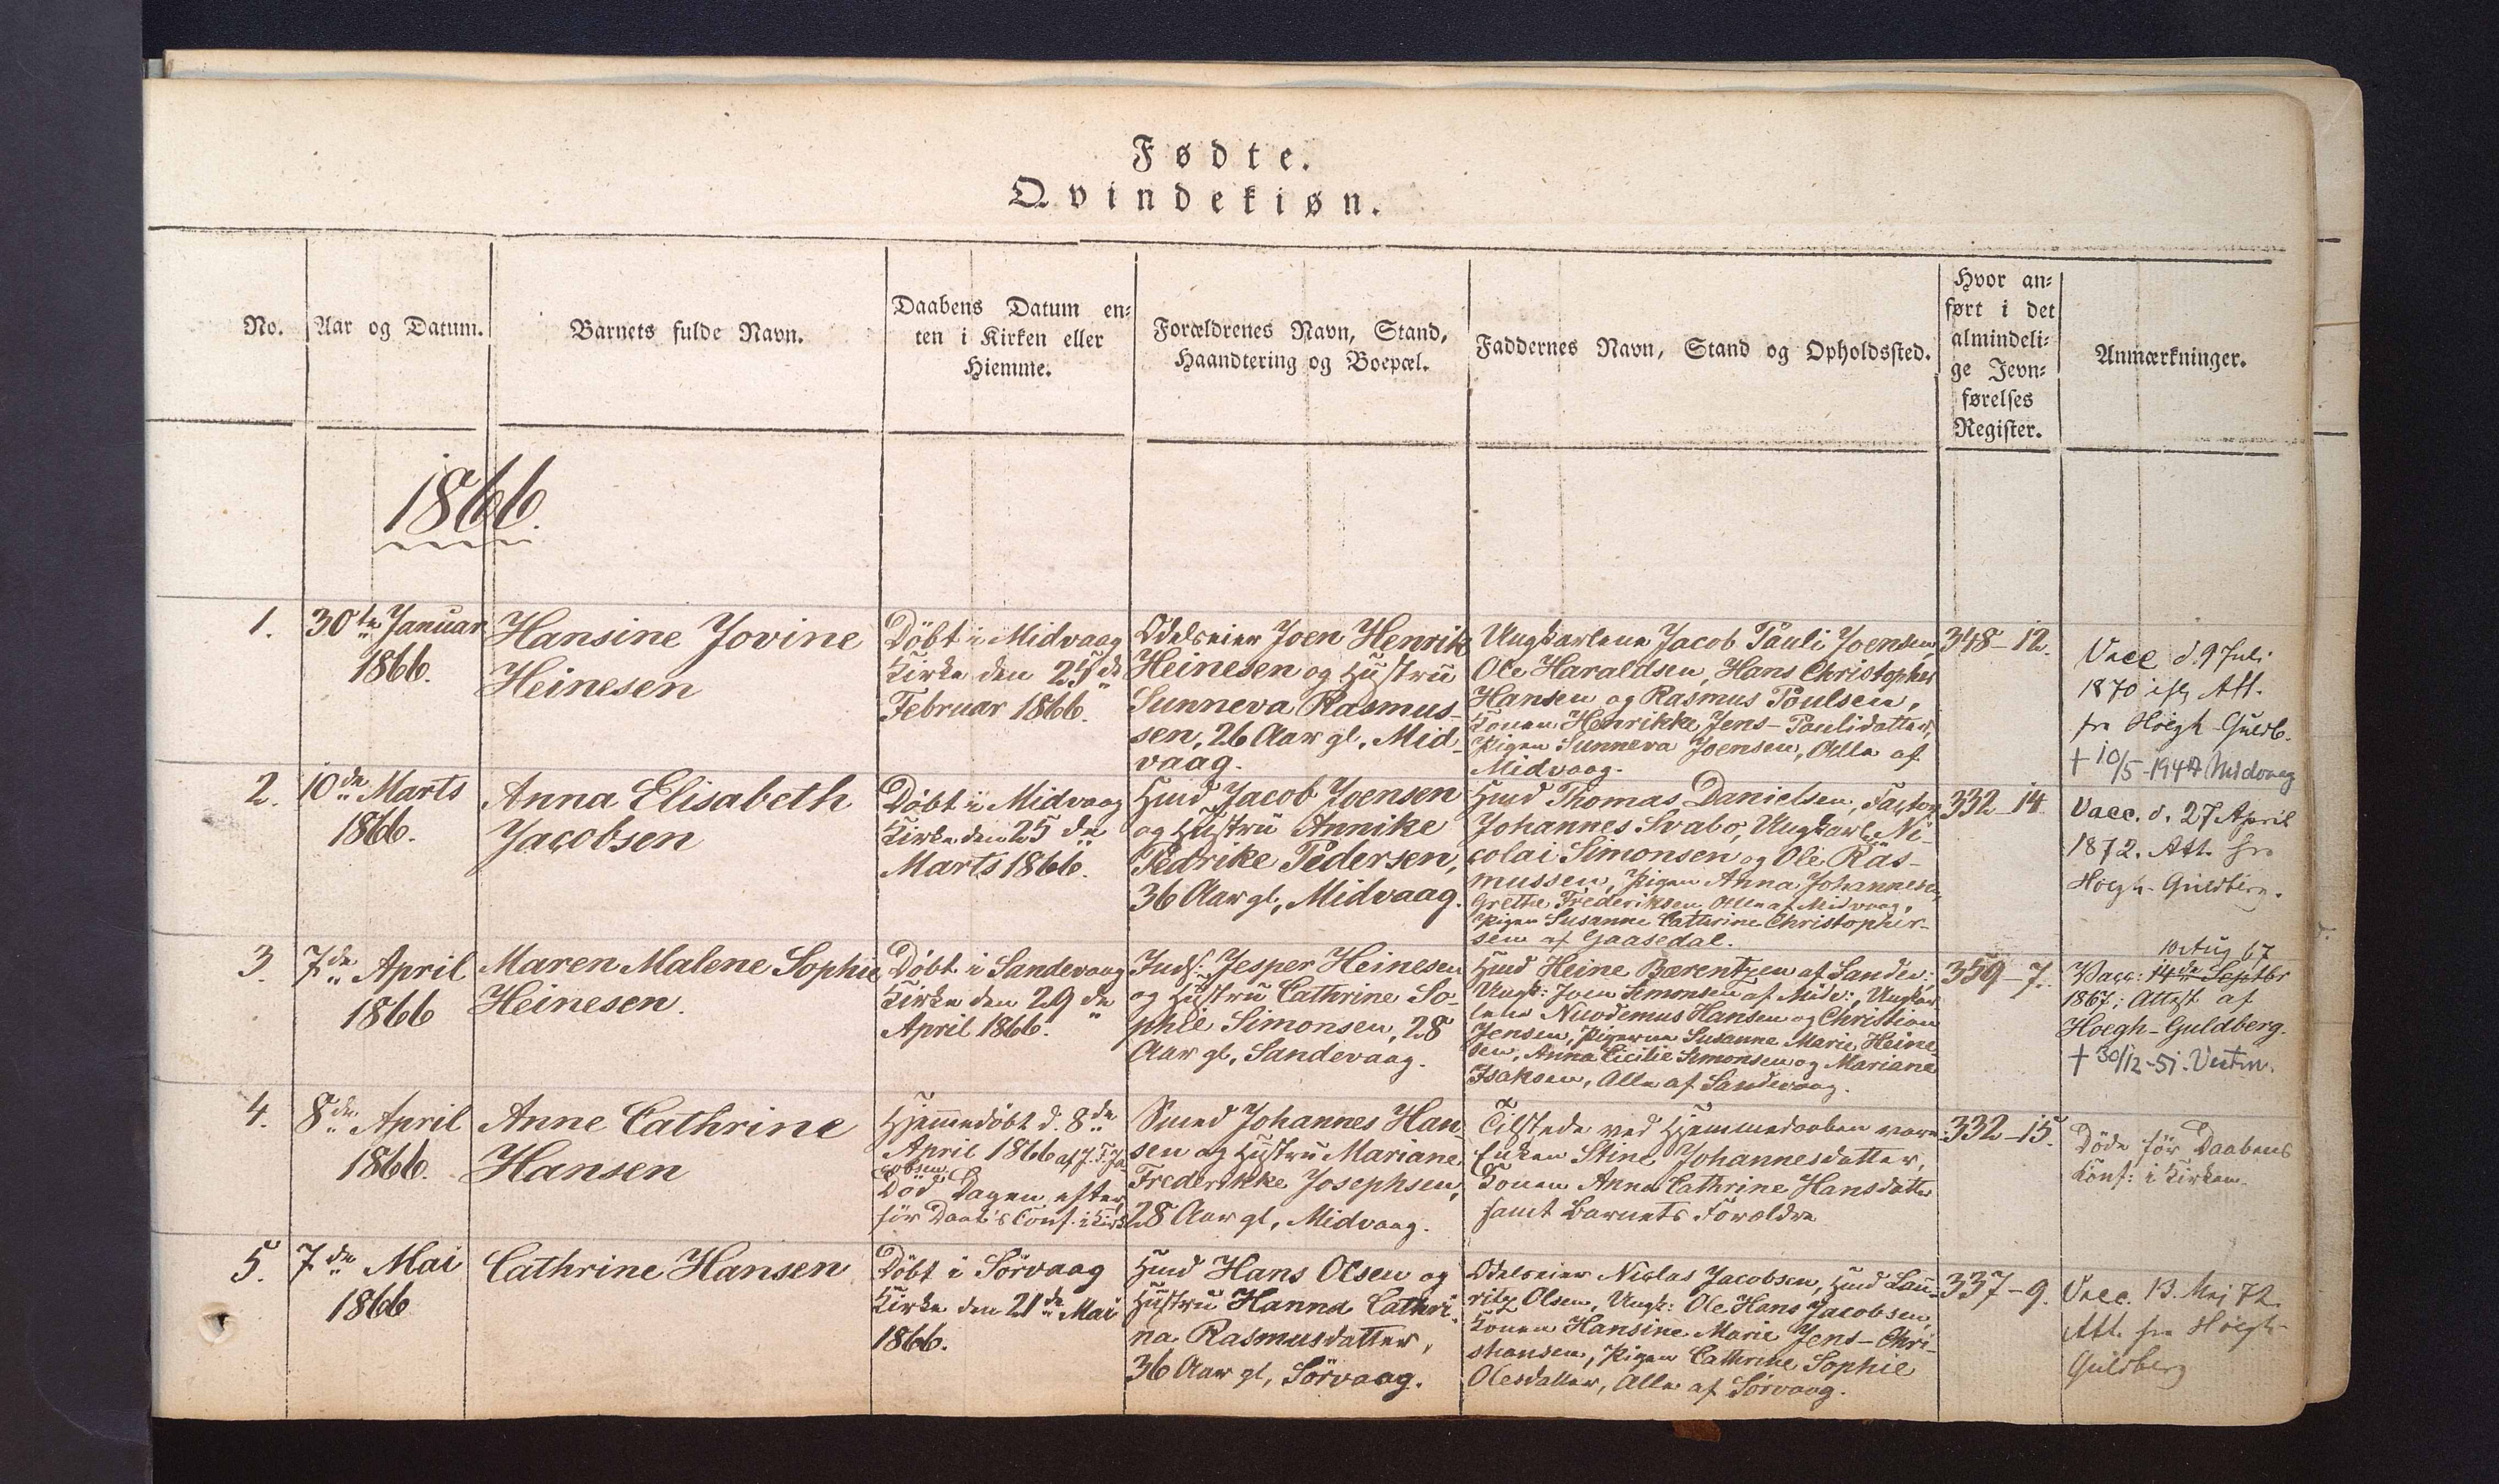 Fødte.
Qvindekiøn.
No.
Aar og Datum.
Barnets fulde Navn.
Daabens Datum en-
ten i Kirken eller
Hiemme.
Forældrenes Navn, Stand,
Haandtering og Boepæl.
Faddernes Navn, Stand og Opholdssted.
Hvor an-
ført i det
almindeli-
ge Jevn-
førelses
Register.
Anmærkninger.
1866.
1.
30te Januar
1866.
Hansine Jovine
Heinesen
Döbt i Midvaag
Kirke den 25de
Februar 1866.
Odelseier Joen Henrik
Heinesen og Hustru
Sunneva Rasmus-
sen, 26 Aar gl, Mid-
vaag.
Ungkarlene Jacob Pauli Joensen,
Ole Haraldsen, Hans Christopher
Hansen og Rasmus Poulsen,
Konen Henrikke Jens-Paulidatter,
Pigen Sunneva Joensen, Alle af
Midvaag.
348-12.
Vacc d. 9 Juli
1870 Att.
fra Höegh Guldb.
† 10/5-1947 Midvaag
2.
10de Marts
1866.
Anna Elisabeth
Jacobsen
Döbt i Midvaag
Kirke den 25de
Marts 1866.
Hmd Jacob Joensen
og Hustru Annike
Pedrike Pedersen,
36 Aar gl, Midvaag.
Hmd Thomas Danielsen, Factor
Johannes Svabo, Ungkarl. Ni-
colai Simonsen og Ole Ras-
mussen, Pigen Anna Johannesen,
Grethe Frederiksen Alle af Midvaag,
Pigen Susanne Cathrine Christopher-
sen af Gaasedal.
332-14
Vacc. d. 27 April
1872. Att. fra
Höegh-Guldberg.
3
7de April
1866
Maren Malene Sophie
Heinesen.
Döbt i Sandevaag
Kirke den 29de
April 1866.
Inds. Jesper Heinesen
og Hustru Cathrine So-
phie Simonsen, 28
Aar gl, Sandevaag.
Hmd Heine Bærentzen af Sandev:
Ungk: Joen Simonsen af Midv:, Ungkar
lene Nicodemus Hansen og Christian
Jensen, Pigerne Susanne Marie Heine-
sen, Anna Cicilie Simonsen og Mariane
Isaksen, Alle af Sandevaag.
359-7.
10 Aug 67
Vacc: 14de Septbr
1867; Attest af
Hoegh-Guldberg.
† 30/12-51. Vestm.
4.
8de April
1866.
Anne Cathrine
Hansen
Hjemmedöbt d. 8de
April 1866 af J. F. Ja-
cobsen.
Död Dagen efter
för Daab's Conf. i Kirk
Smed Johannes Han-
sen og Hustru Mariane
Frederikke Josephsen,
28 Aar gl, Midvaag.
Tilstede ved Hjemmedaaben vare:
Enken Stine Johannesdatter,
Konen Anna Cathrine Hansdatter
samt Barnets Forældre
332-15.
Döde för Daabens
Conf: i Kirken.
5.
7de Mai
1866
Cathrine Hansen
Döbt i Sörvaag
Kirke den 21de Mai
1866.
Hmd Hans Olsen og
Hustru Hanna Cathri-
na Rasmusdatter,
36 Aar gl, Sörvaag.
Odelseier Niclas Jacobsen, Hmd Lau-
ritz Olsen, Ungk: Ole Hans Jacobsen,
Konen Hansine Marie Jens-Chri-
stiansen, Pigen Cathrine Sophie
Olesdatter, Alle af Sörvaag.
337-9.
Vacc. 13. Maj 72.
Att. fra Höegh-
Guldberg